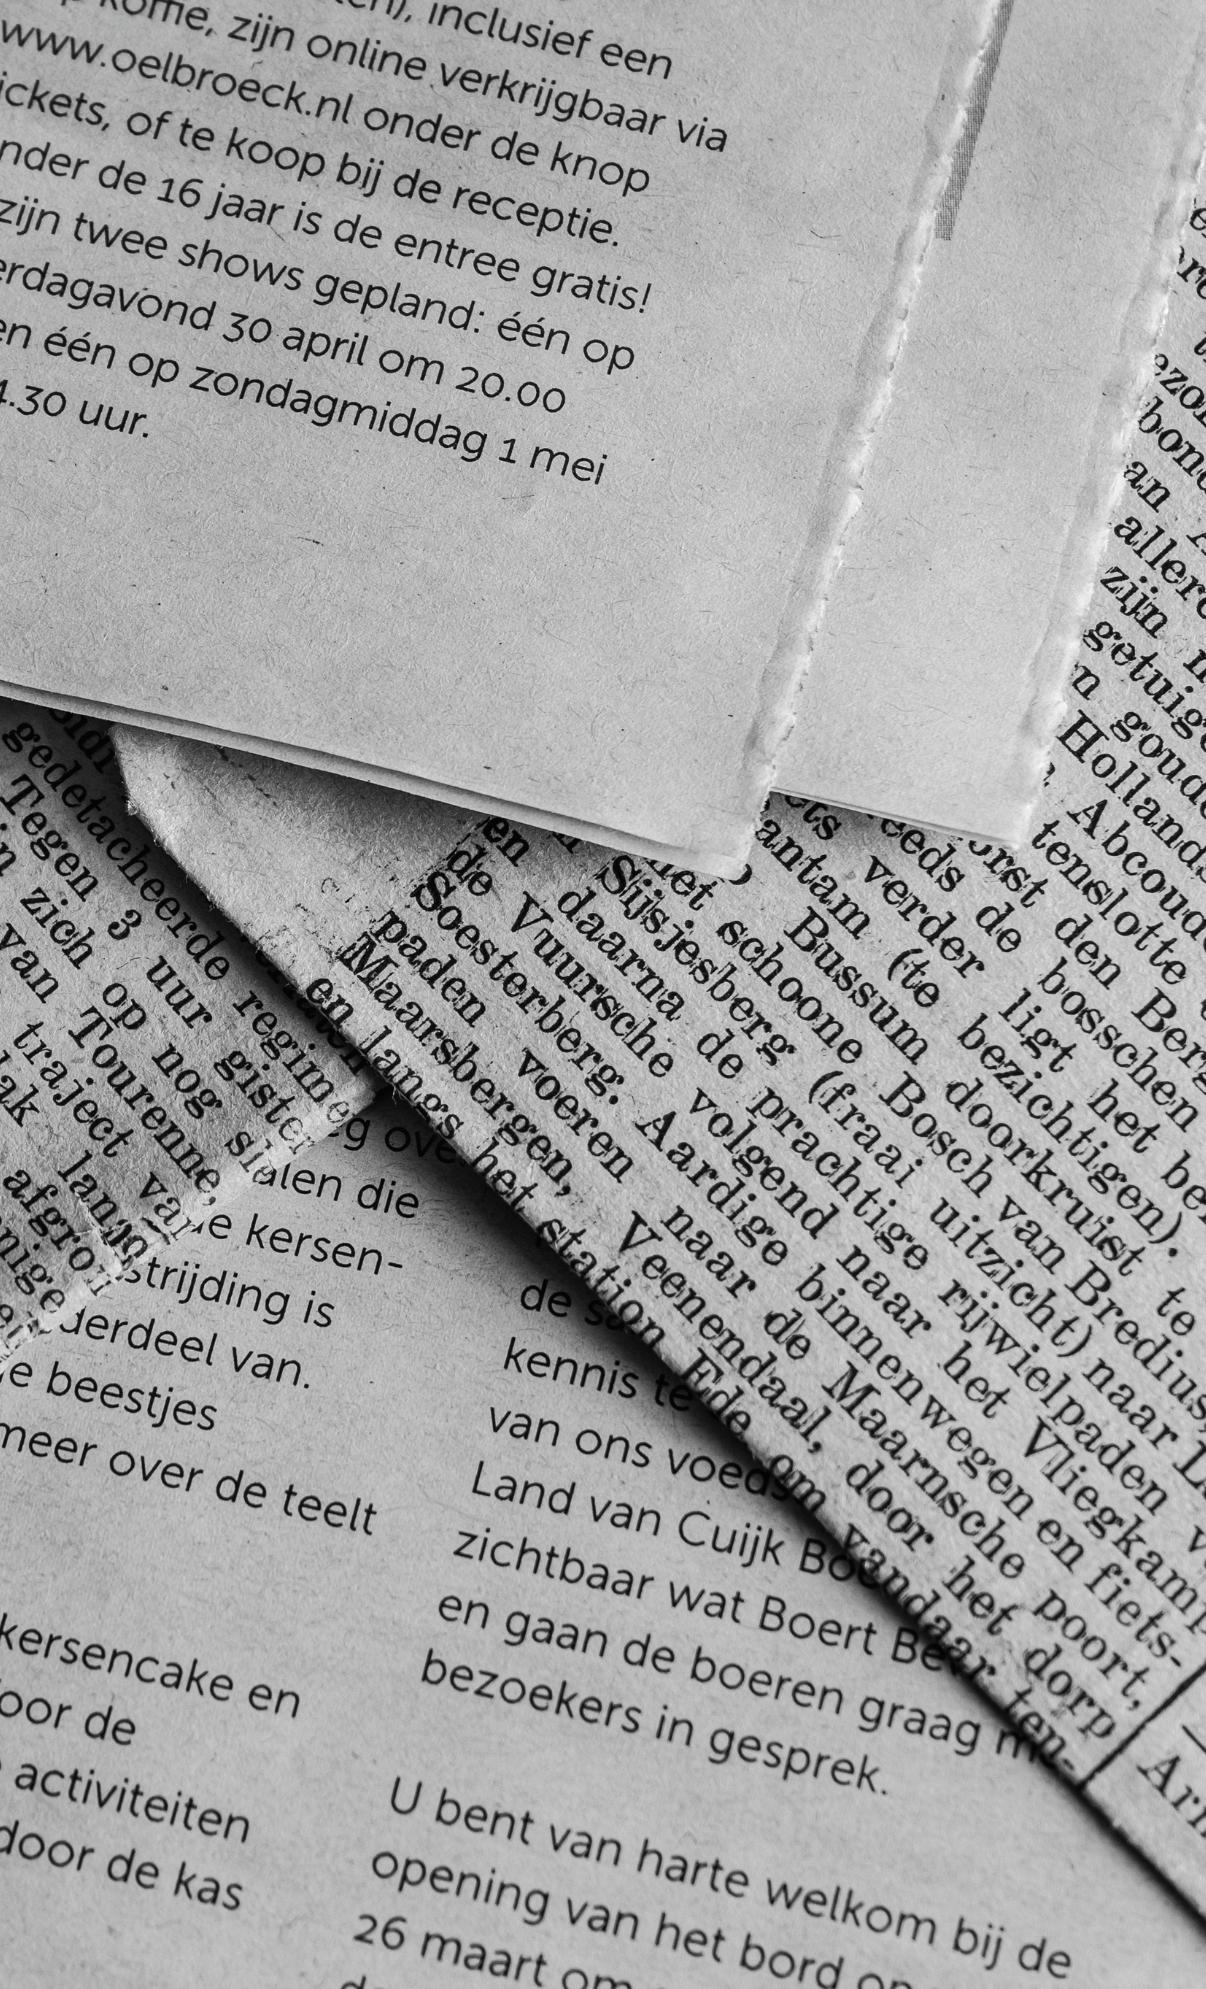 inclusief een
kome, zijn online verkrijgbaar via
www.oelbroeck.nl onder de knop
ickets, of te koop bij de receptie.
nder de 16 jaar is de entree gratis!
zijn twee shows gepland: één op
erdagavond 30 april om 20.00
en één op zondagmiddag 1 mei
4.30 uur.
bond
an
zijn
Hollands
Abcoude
tenslotte
orst den Berg
eeds de bosschen
ets verder ligt het be
antam (te bezichtigen).
Bussum doorkruist te
het schoone Bosch van Bredius,
Sijsjesberg (fraai uitzicht) naar L
en daarna de prachtige rijwielpaden v
de Vuursche volgend naar het Vliegkamp
Soesterberg. Aardige binnenwegen en fiets-
paden voeren naar de Maarnsche poort,
Maarsbergen, Veenendaal, door het dorp
en langs het station Ede om vandaar ten-
gedetacheerde regime
Tegen 3 uur gister
in zich op nog sl
van Tourenne,
traject van
lak lang
afgron
nige
alen die
e kersen-
strijding is
derdeel van.
e beestjes
meer over de teelt
kersencake en
oor de
activiteiten
door de kas
de
kennis te
van ons voeds
Land van Cuijk Boe
zichtbaar wat Boert Be
en gaan de boeren graag m
bezoekers in gesprek.
U bent van harte welkom bij de
opening van het bord op
26 maart om